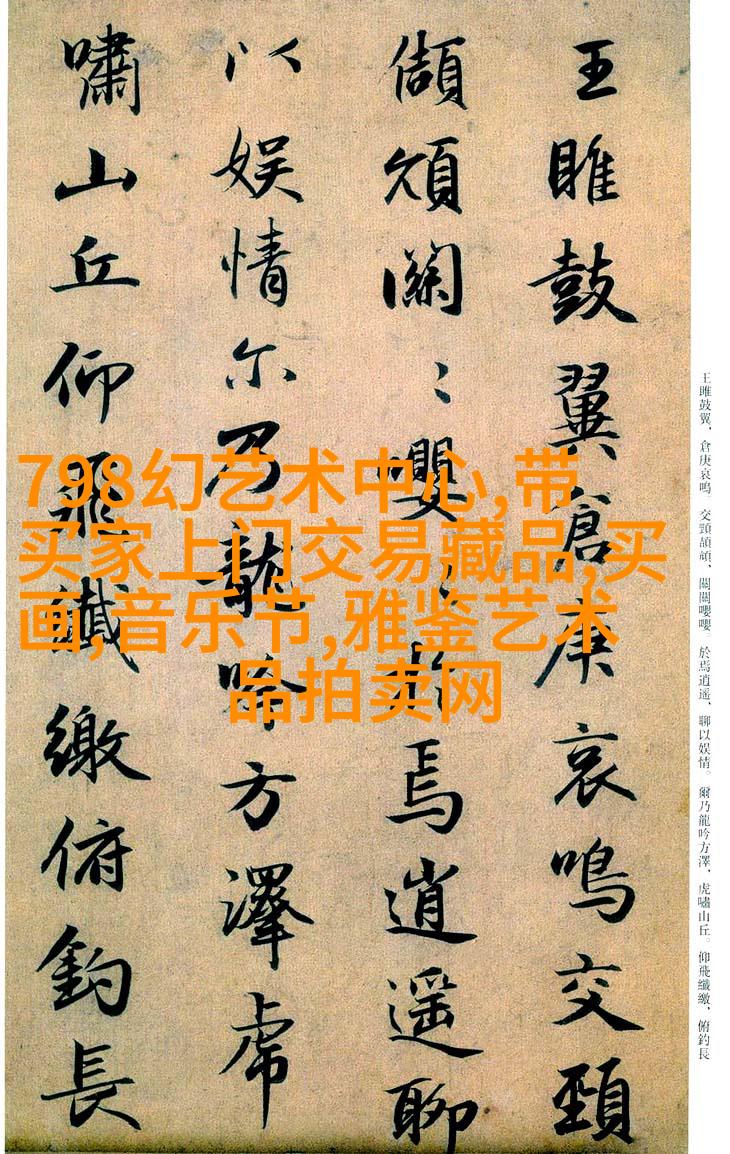 王雎鼓翼倉庚哀鳴交頸
頡頏關〻嚶〻於焉逍遥聊
以娱情尔乃龍吟方澤虎
嘯山丘仰飛纖繳俯釣長
798幻艺术中心,带
买家上门交易藏品,买
画,音乐节,雅鉴艺术
品拍卖网
王雎鼓翼、倉庚哀鳴。交頸頡頏、關關嚶嚶。於焉逍遥、聊以娱情。爾乃龍吟方澤、虎嘯山丘。仰飛纖繳、俯釣長